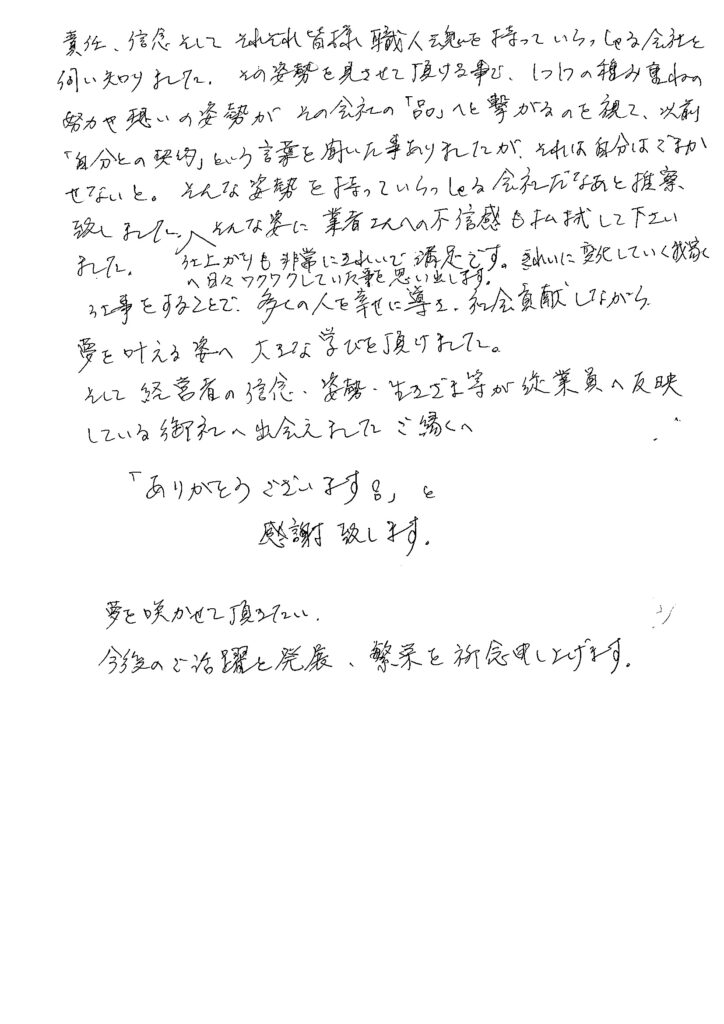 責任、信念そして それぞれ皆様 職人魂を持っていらっしゃる会社と
伺い知りました。その姿勢を見させて頂ける事で、1つ1つの積み重ねの
努力や想いの姿勢が その会社の「品」へと繋がるのを視て、以前
「自分との契約」という言葉を聞いた事ありましたが、それは自分はごまか
せないと。そんな姿勢を持っていらっしゃる会社だなあと推察
致しました。そんな姿に業者さんへの不信感も払拭して下さい
ました。仕上がりも非常にきれいで満足です。きれいに変化していく我家
へ日々ワクワクしていた事を思い出します。
仕事をすることで、多くの人を幸せに導き、社会貢献しながら
夢を叶える姿へ 大きな学びを頂けました。
そして経営者の信念・姿勢・生きざま等が従業員へ反映
している御社へ出会えましたご縁へ
「ありがとうございます」と
感謝致します。
夢を咲かせて頂きたい。
今後のご活躍と発展、繁栄を祈念申し上げます。